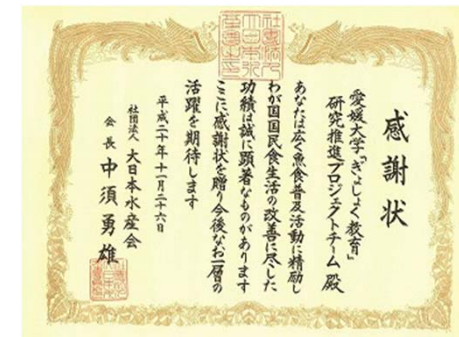 感謝状
愛媛大学「ぎょしょく教育」
研究推進プロジェクトチーム 殿
あなたは広く魚食普及活動に精励し
わが国国民食生活の改善に尽した
功績は誠に顕著なものがあります
ここに感謝状を贈り今後なお一層の
活躍を期待します
平成二十年十一月二十六日
社団法人 大日本水産会
会長 中須勇雄